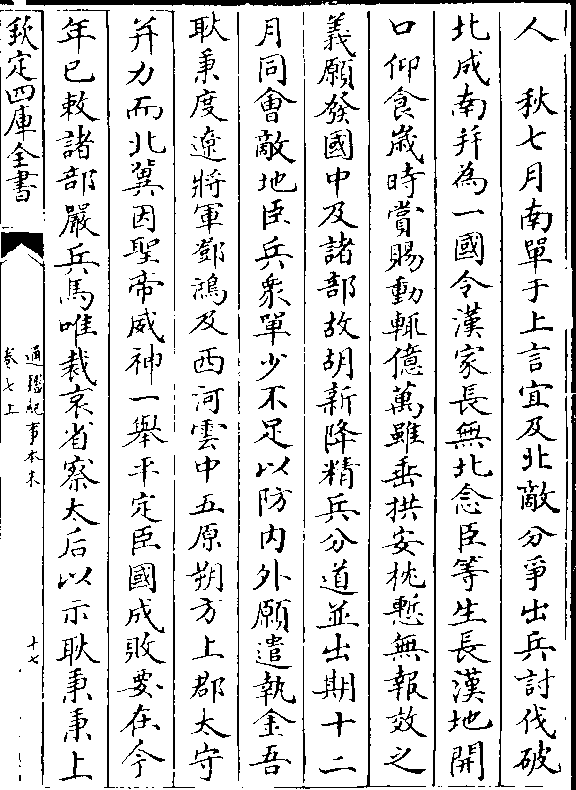 人　秋七月南單于上言宜及北敵分爭出兵討伐破
北成南并為一國令漢家長無北念臣等生長漢地開
口仰食歲時賞賜動輒億萬雖垂拱安枕慙無報效之
義願發國中及諸部故胡新降精兵分道並出期十二
月同會敵地臣兵衆單少不足以防内外願遣執金吾
耿秉度遼將軍鄧鴻及西河雲中五原朔方上郡太守
并力而北冀因聖帝威神一舉平定臣國成敗要在今
年已敕諸部嚴兵馬唯裁哀省察太后以示耿秉秉上
欽定四庫全書
通鑑紀事本末
卷七上
十七